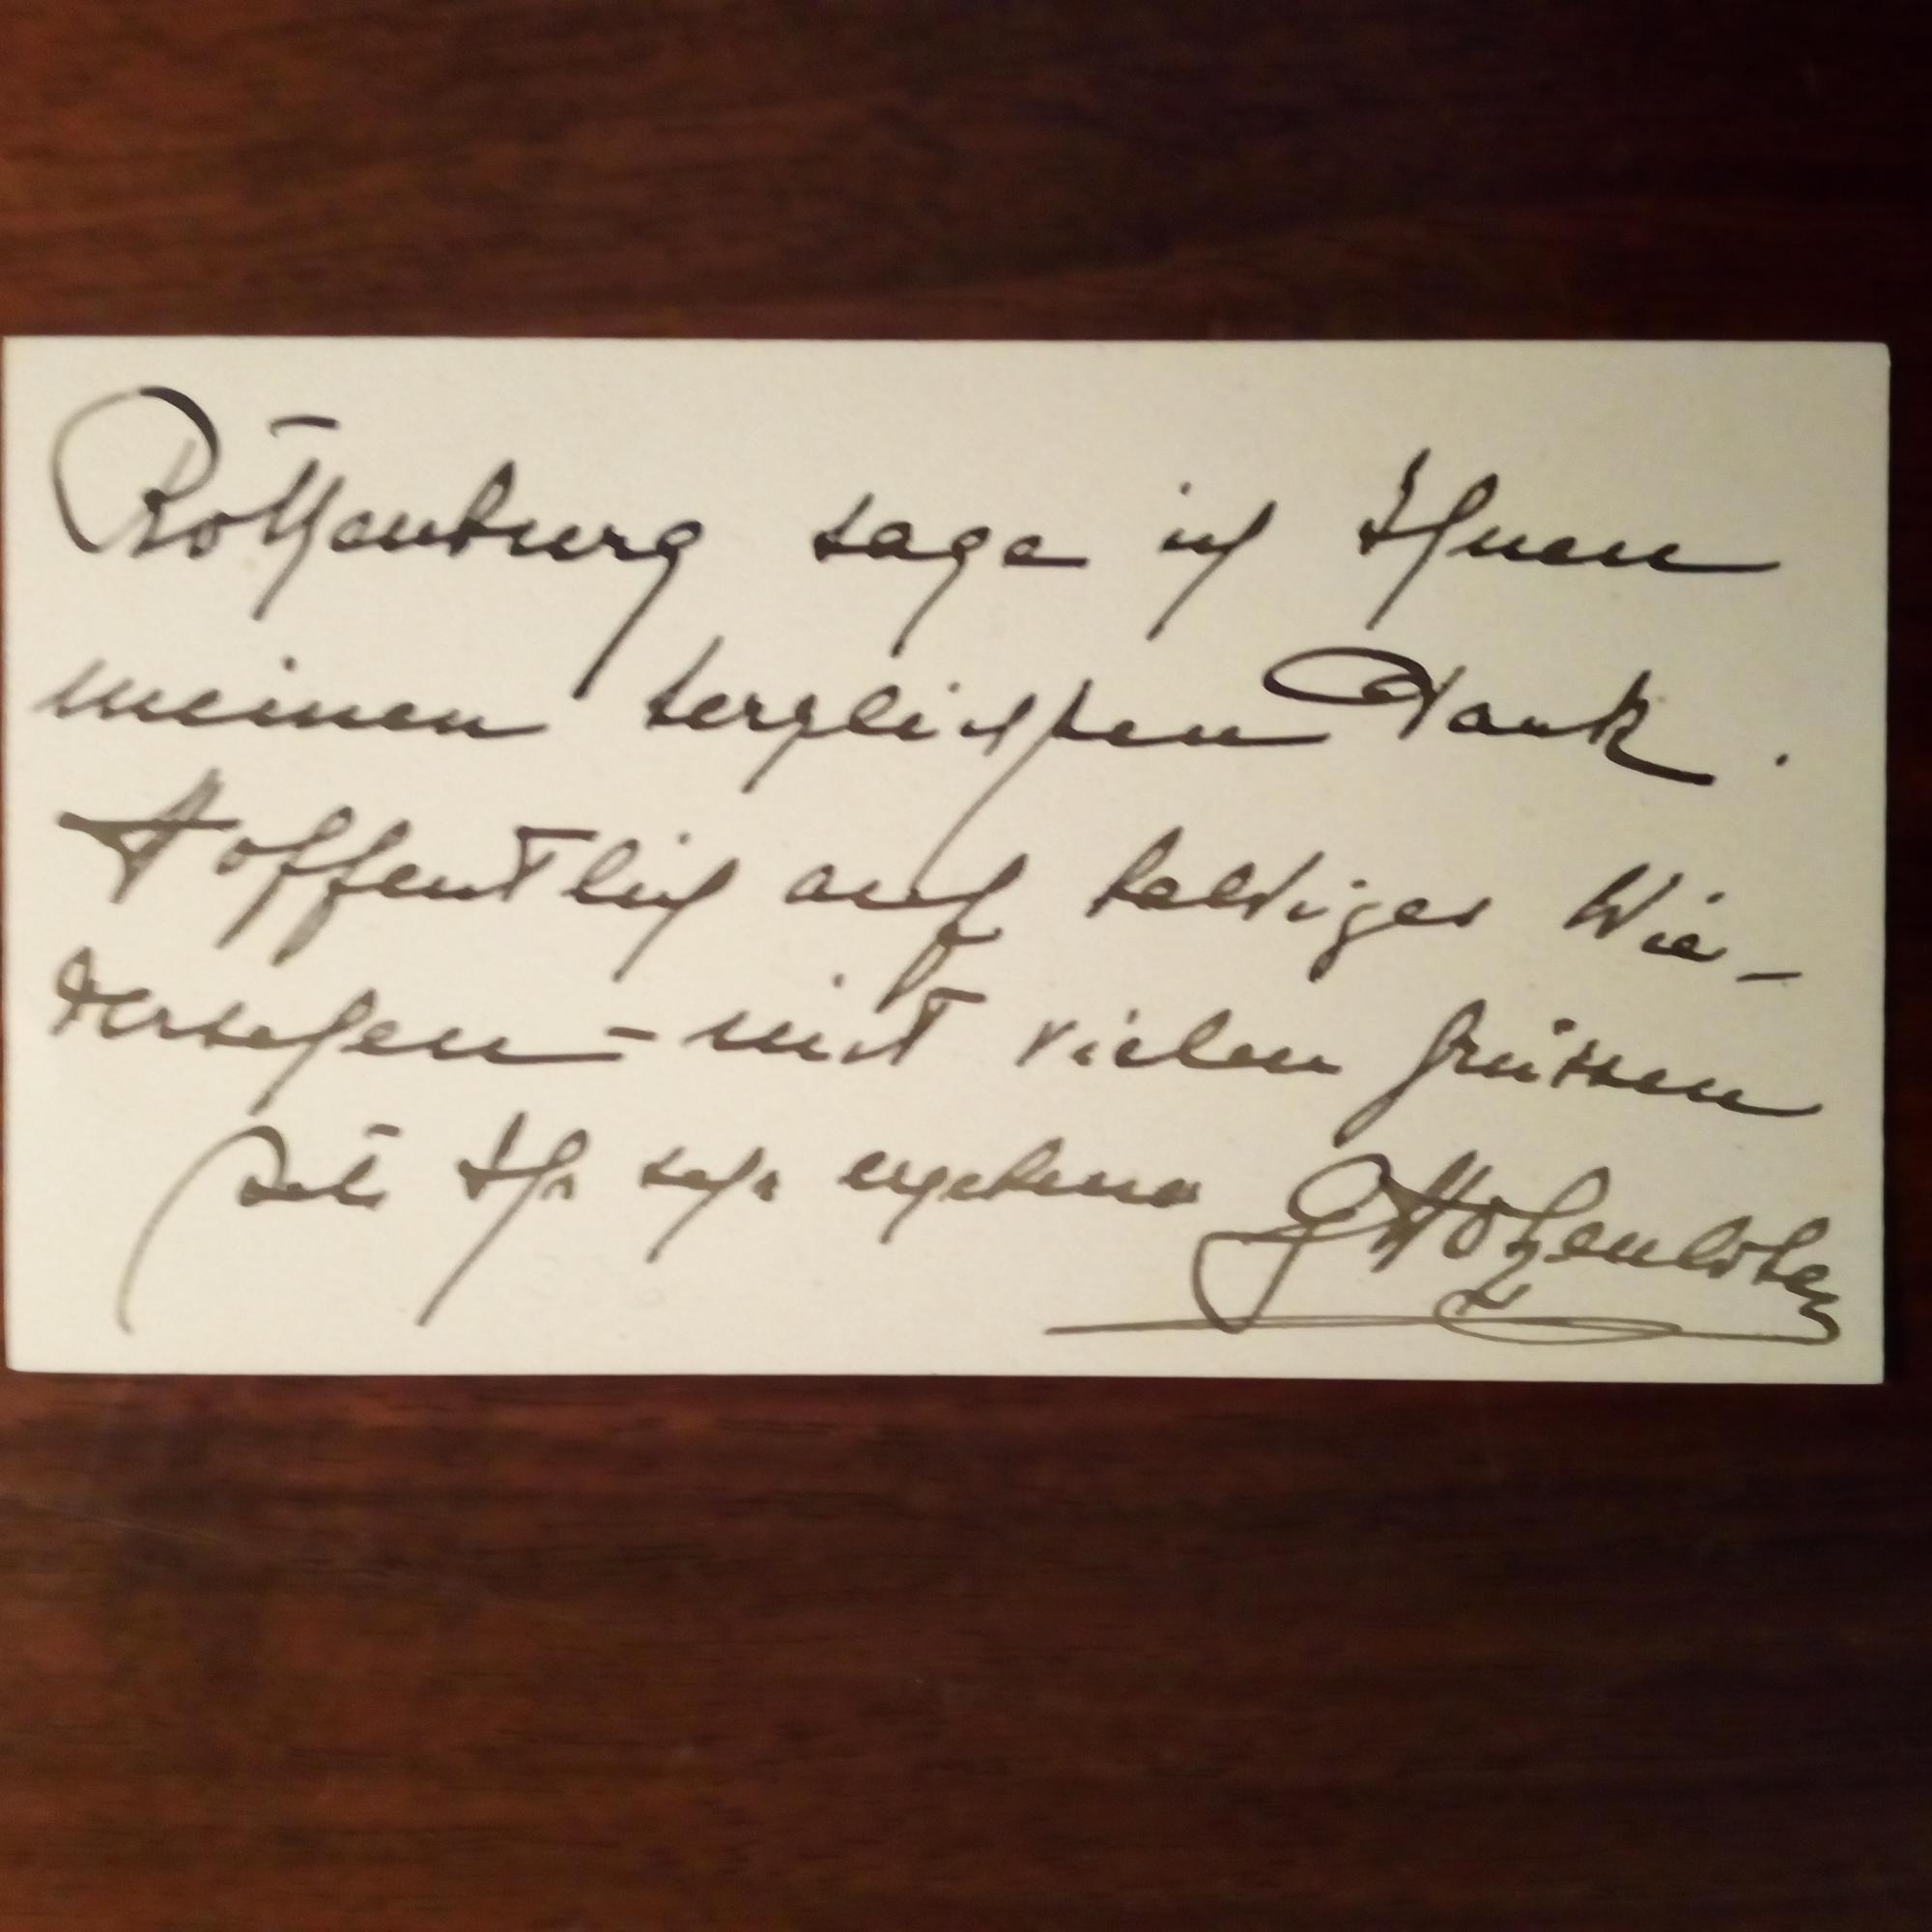 Rothenburg sage ich Ihnen
meinen herzlichen Dank.
Hoffentlich auf baldiges Wie-
dersehen - mit vielen Grüssen
Ihr sehr ergebener